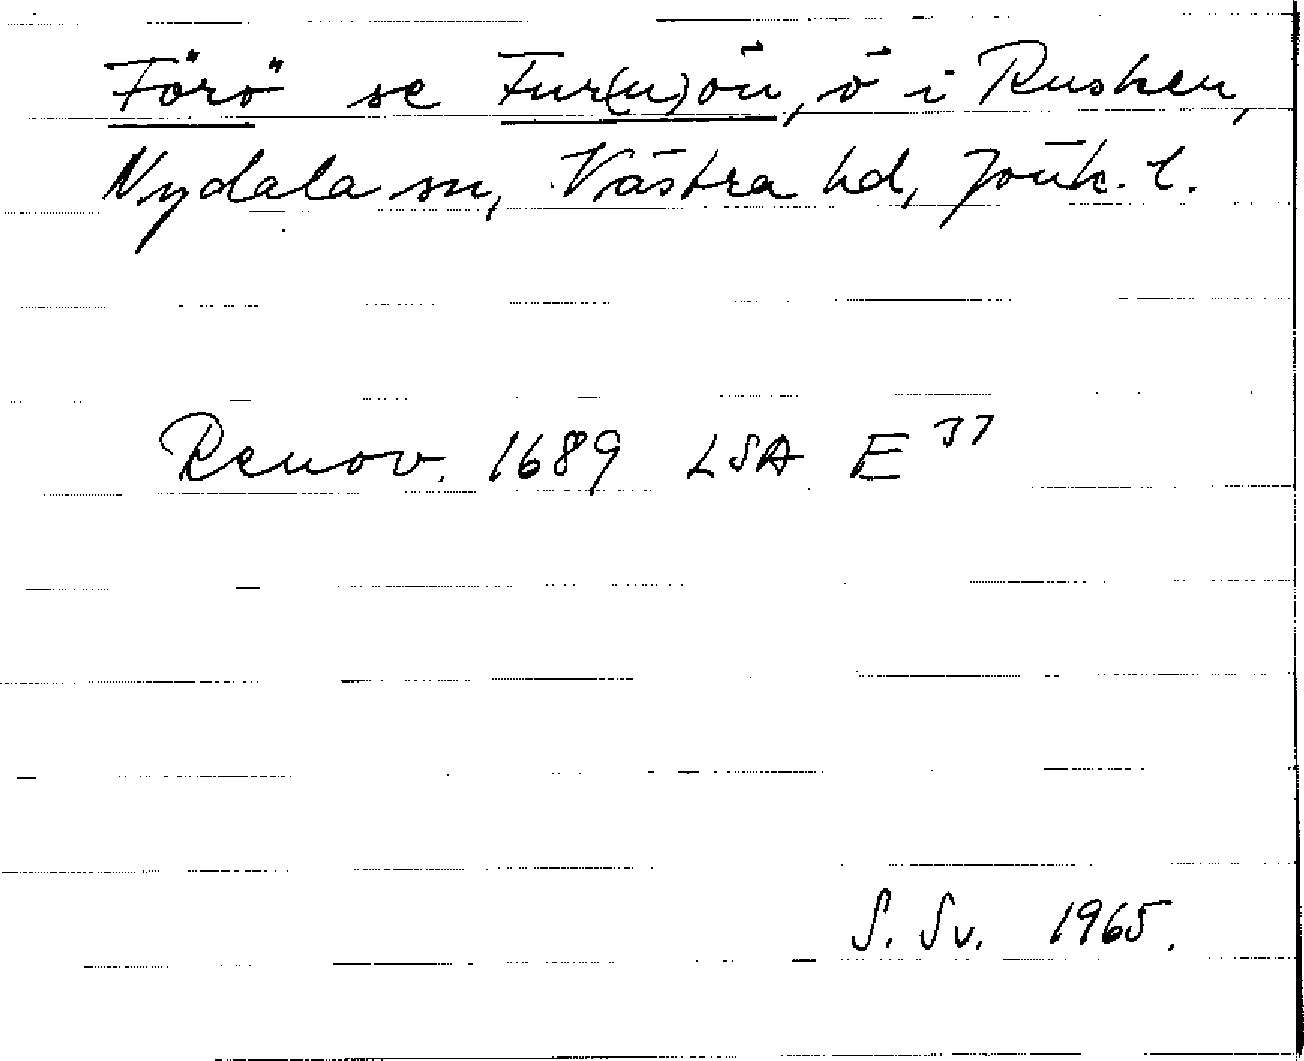 Förö se Fur(u)ön, ö i Rusken,
Nydala sn, Västra hd, Jönk. l.
Renov. 1689 LSA E 37
S. Sv. 1965.